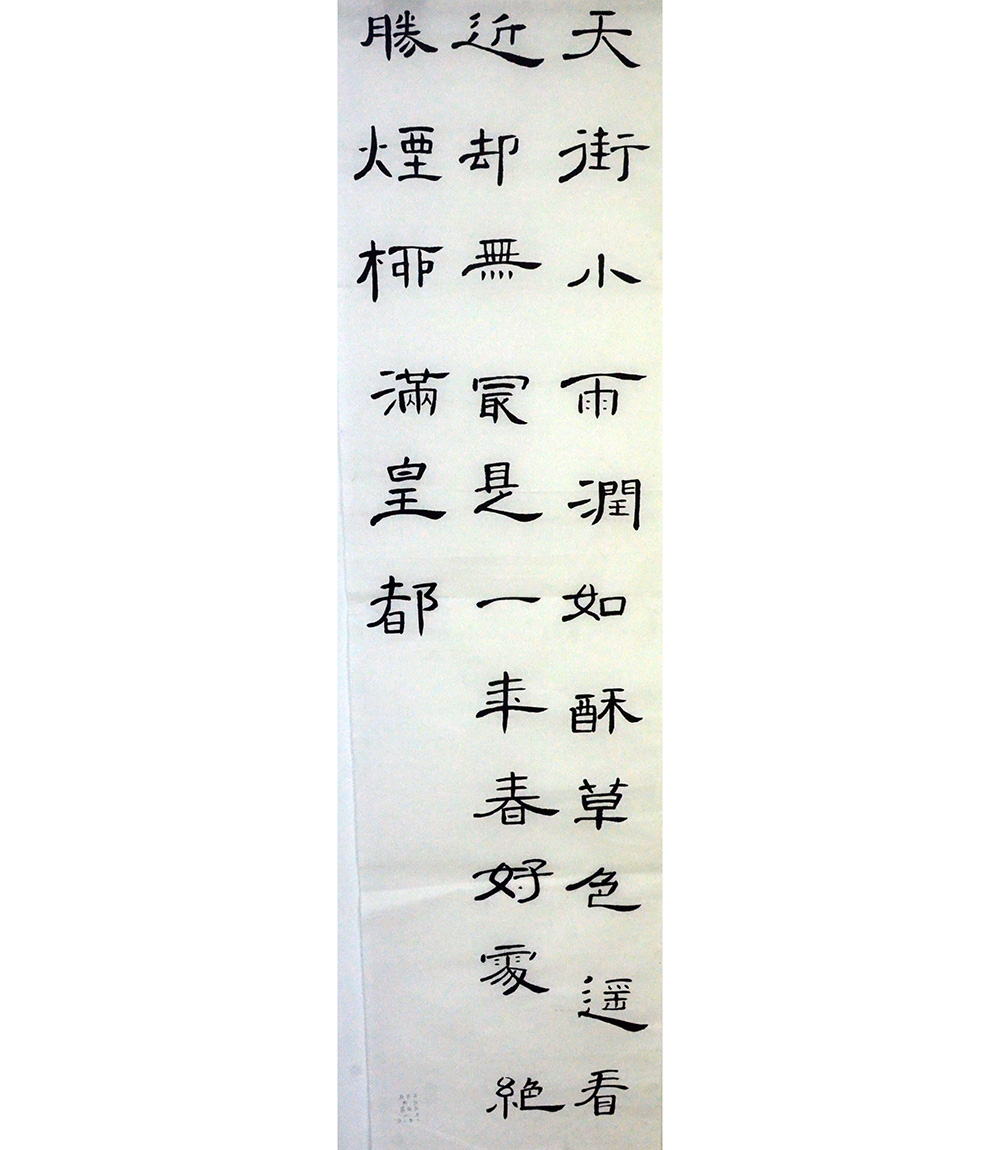 天街小雨潤如酥草色遥看
近却無冣是一年春好處絶
勝煙栁滿皇都